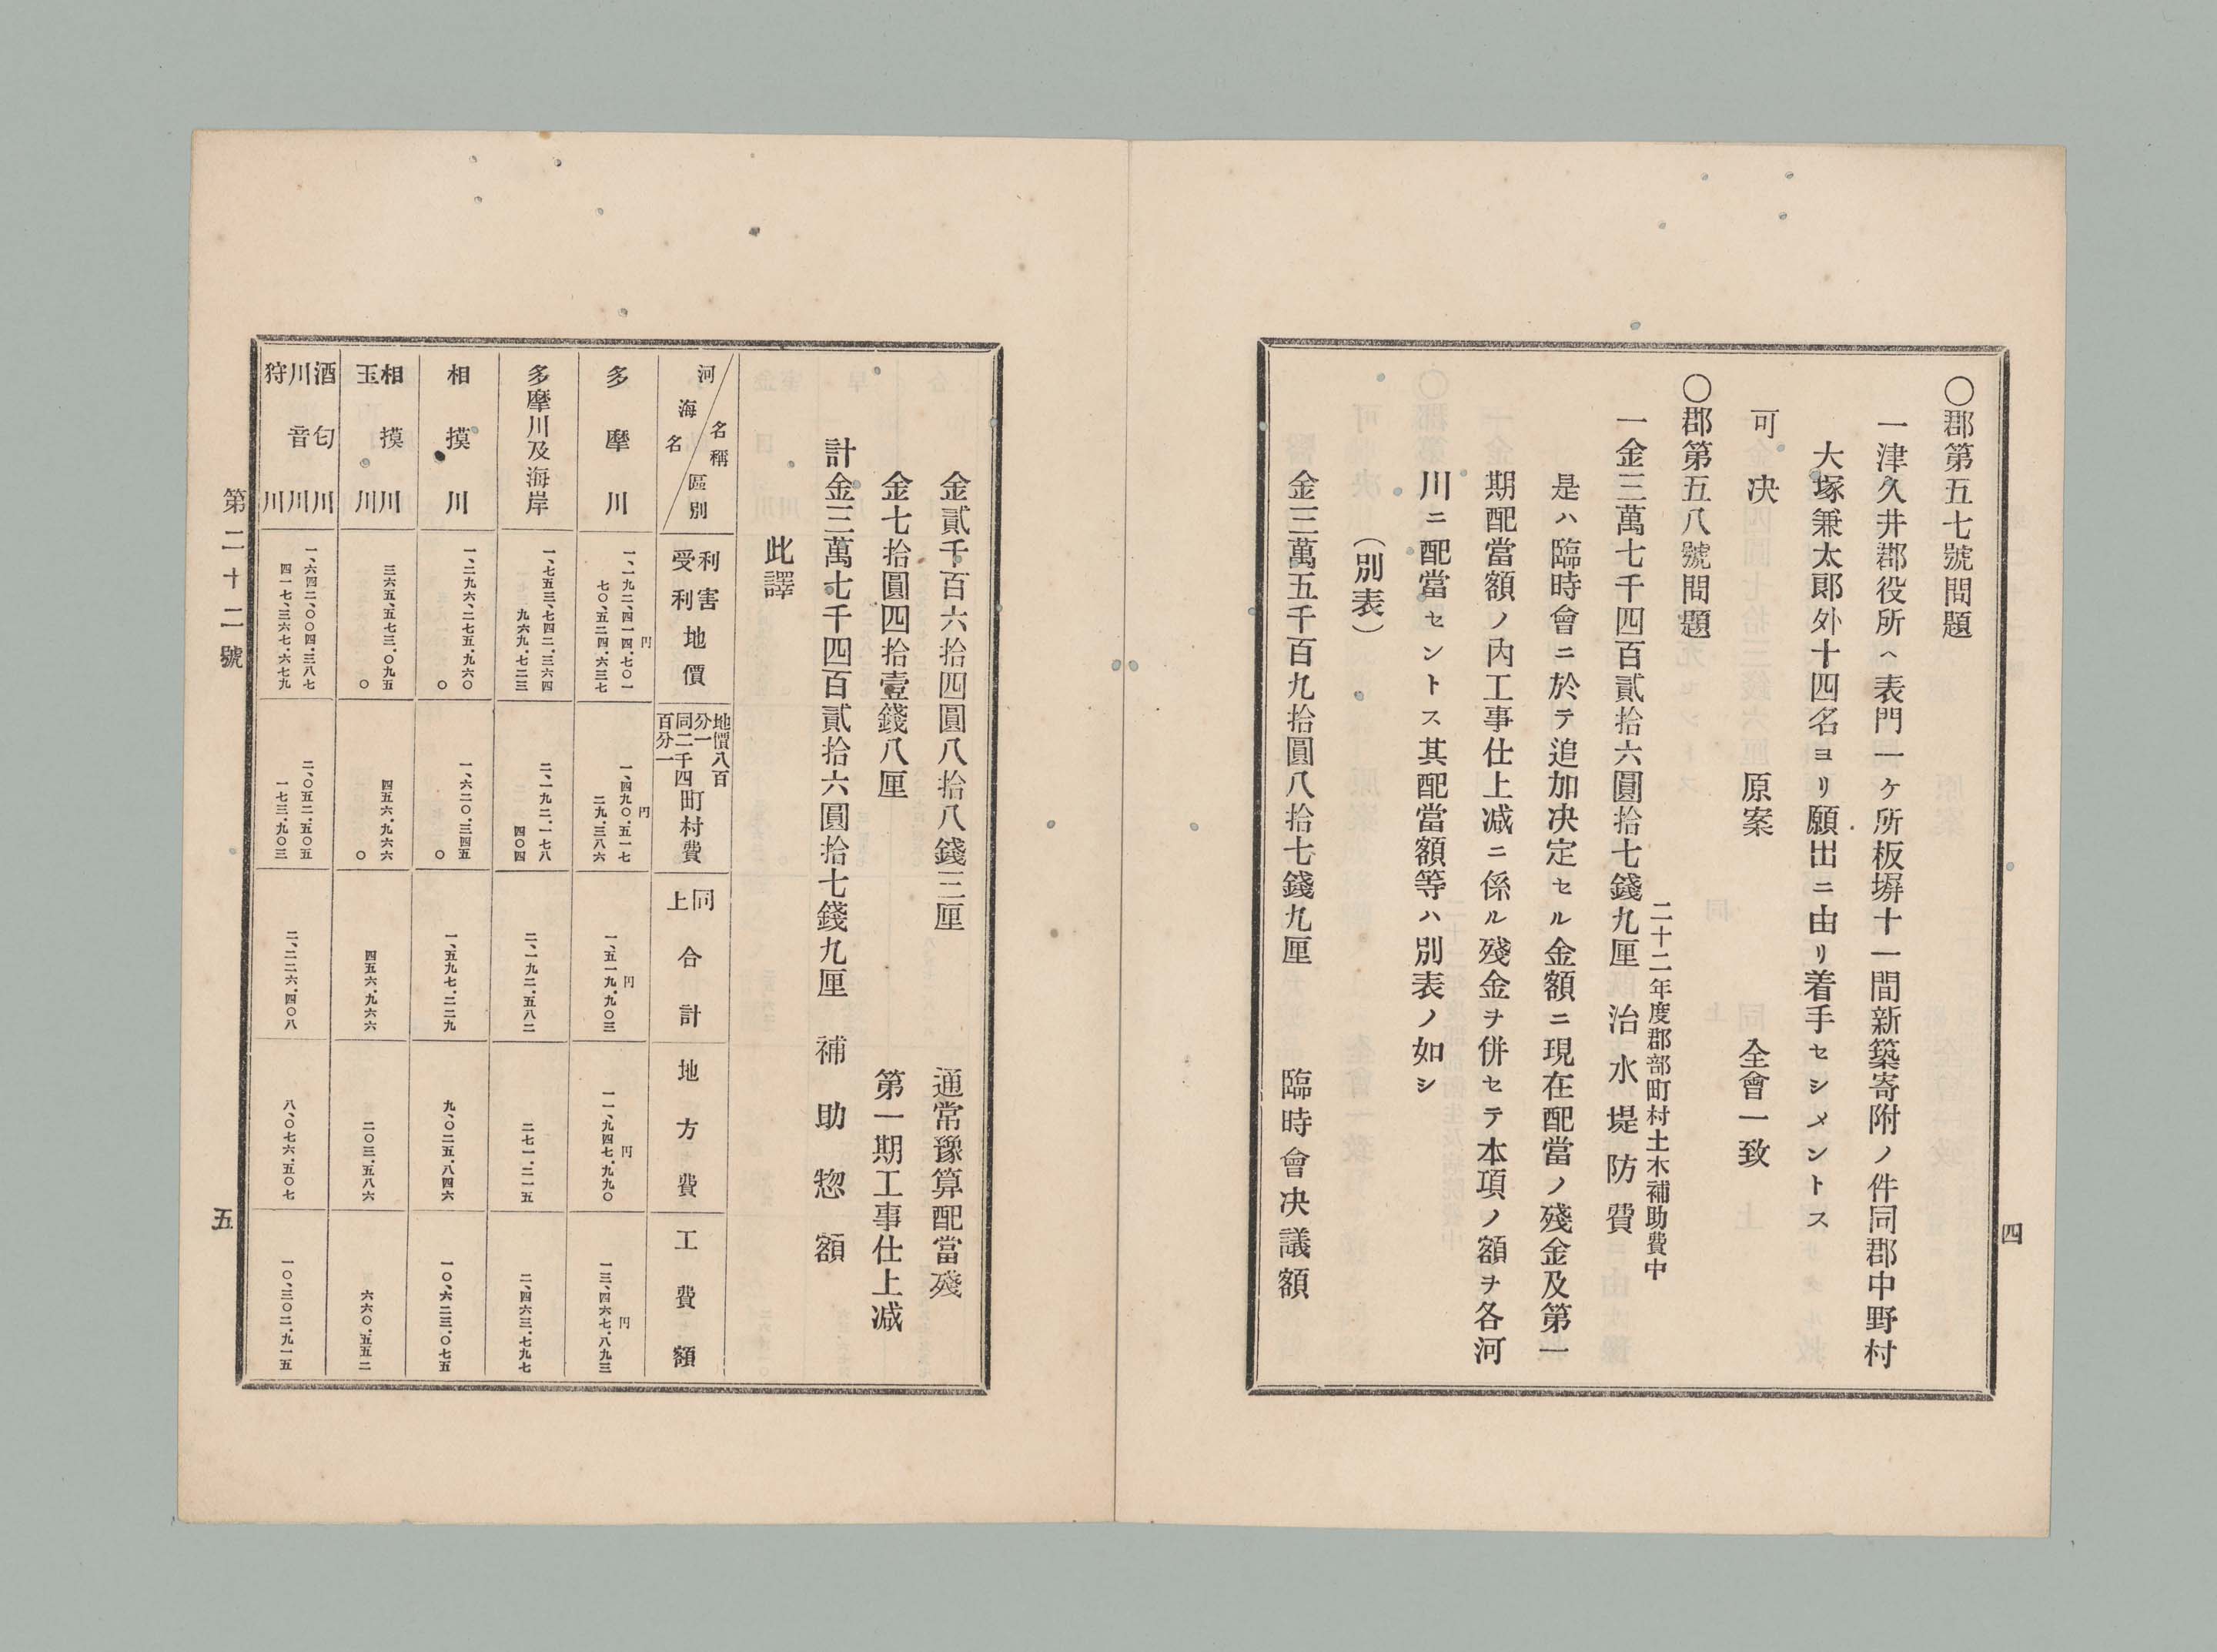 四
〇郡第五七號問題
一津久井郡役所ヘ表門一ケ所板塀十一間新築寄附ノ件同郡中野村
大塚兼太郎外十四名ヨリ願出ニ由リ着手セシメントス
可決　原案　全會一致
〇郡第五八號問題
二十二年度郡部町村土木補助費中
一金三萬七千四百貳拾六圓拾七錢九厘　治水堤防費
是ハ臨時會ニ於テ追加決定セル金額ニ現在配當ノ殘金及第一
期配當額ノ內工事仕上减ニ係ル殘金ヲ併セテ本項ノ額ヲ各河
川ニ配當セントス其配當額等ハ別表ノ如シ
（別表）
金三萬五千百九拾圓八拾七錢九厘　臨時會決議額
金貳千百六拾四圓八拾八錢三厘　通常豫算配當殘
金七拾圓四拾壹錢八厘　第一期工事仕上减
計金三萬七千四百貳拾六圓拾七錢九厘　補助惣額
此譯
河海名　名稱　區別
利害
受利　地價
地價八百
分一
同二千四
百分一　町村費
同
上　合計
地方費
工費額
多摩川
一、一九二、四一四.七〇一円
七〇、五二四.六三七
一、四九〇.五一七円
二九.三八六
一、五一九.九〇三円
一一、九四七.九九〇円
一三、四六七.八九三円
多摩川及海岸
一、七五三、七四二.三六四
九六九.七二三
二、一九二.一七八
四〇四
二、一九二.五八二
二七一.二一五
二、四六三.七九七
相摸川
一、二九六、二七五.九六〇
〇
一、六二〇.三四五
〇
一、五九七.二二九
九、〇二五.八四六
一〇、六二三.〇七五
相摸川
玉川
三六五、五七三.〇九五
〇
四五六.九六六
〇
四五六.九六六
二〇三.五八六
六六〇.五五二
酒匂川
川音川
狩川
一、六四二、〇〇四.三八七
四一七、三六七.六七九
二、〇五二.五〇五
一七三.九〇三
二、二二六.四〇八
八、〇七六.五〇七
一〇、三〇二.九一五
第二十二號
五